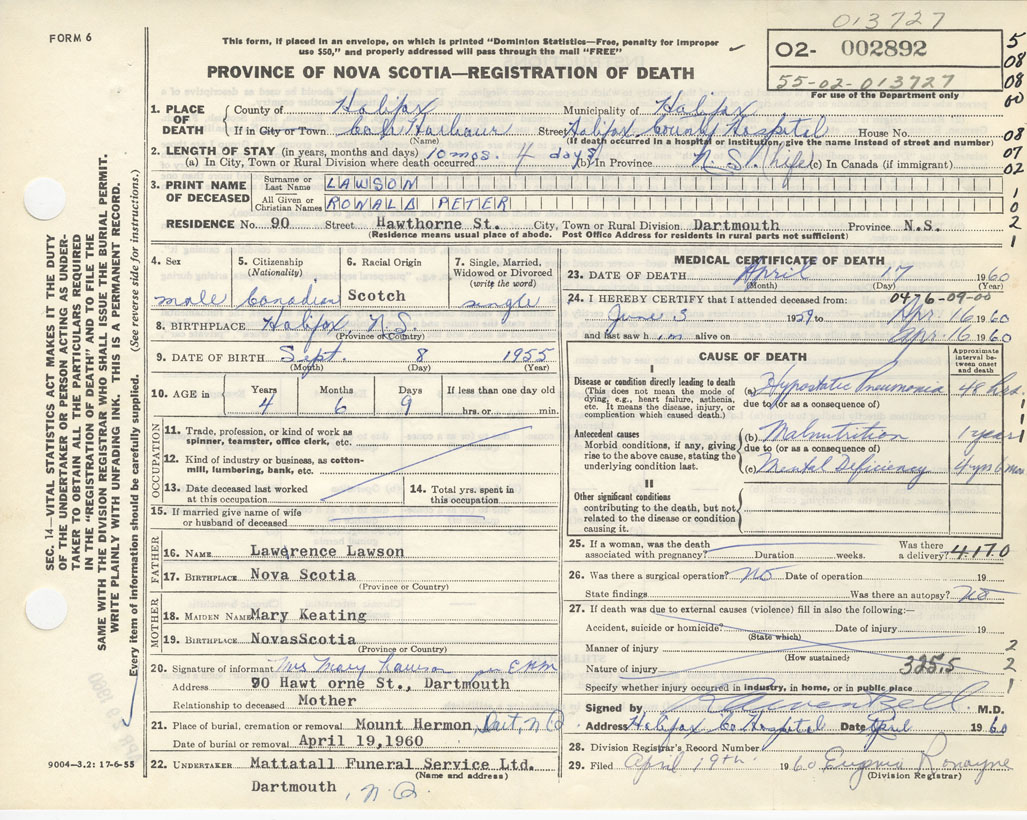 013727
FORM 6
This form, if placed in an envelope, on which is printed "Dominion Statistics—Free, penalty for improper
use $50," and properly addressed will pass through the mail "FREE"
O2- 002892
55-02-013727
For use of the Department only
PROVINCE OF NOVA SCOTIA—REGISTRATION OF DEATH
5
08
08
60
08
07
02
1
0
2
1
1. PLACE OF DEATH
County of Halifax Municipality of Halifax
If in City or Town Cole Harbour Street Halifax County Hospital House No.
(Name) (If death occurred in a hospital or institution, give the name instead of street and number)
2. LENGTH OF STAY (in years, months and days)
(a) In City, Town or Rural Division where death occurred 10 mos. 4 days (b) In Province N.S. life (c) In Canada (if immigrant)
3. PRINT NAME OF DECEASED
Surname or Last Name LAWSON
All Given or Christian Names RONALD PETER
RESIDENCE No. 90 Street Hawthorne St. City, Town or Rural Division Dartmouth Province N.S.
(Residence means usual place of abode. Post Office Address for residents in rural parts not sufficient)
4. Sex
male
5. Citizenship (Nationality)
Canadian
6. Racial Origin
Scotch
7. Single, Married, Widowed or Divorced (write the word)
single
8. BIRTHPLACE Halifax, N.S.
(Province or Country)
9. DATE OF BIRTH Sept. 8 1955
(Month) (Day) (Year)
10. AGE in
Years 4
Months 6
Days 9
If less than one day old
hrs. or min.
OCCUPATION
11. Trade, profession, or kind of work as
spinner, teamster, office clerk, etc.
12. Kind of industry or business, as cotton-
mill, lumbering, bank, etc.
13. Date deceased last worked
at this occupation
14. Total yrs. spent in
this occupation
15. If married give name of wife
or husband of deceased
FATHER
16. NAME Lawerence Lawson
17. BIRTHPLACE Nova Scotia
(Province or Country)
MOTHER
18. MAIDEN NAME Mary Keating
19. BIRTHPLACE NovasScotia
(Province or Country)
20. Signature of informant Mrs Mary Lawson per E.H.M
Address 90 Hawt orne St., Dartmouth
Relationship to deceased Mother
21. Place of burial, cremation or removal Mount Hermon, Dart, N.S.
Date of burial or removal April 19,1960
22. UNDERTAKER Mattatall Funeral Service Ltd.
(Name and address)
Dartmouth, N.S.
MEDICAL CERTIFICATE OF DEATH
23. DATE OF DEATH April 17 1960
(Month) (Day) (Year)
24. I HEREBY CERTIFY that I attended deceased from: 0476-09-00
June 3 1959 to Apr. 16 1960
and last saw him alive on Apr 16 1960
CAUSE OF DEATH
Approximate interval between onset and death
I
Disease or condition directly leading to death
(This does not mean the mode of
dying, e.g., heart failure, asthenia,
etc. It means the disease, injury, or
complication which caused death.)
(a) Hypostatic Pneumonia 48 hrs.
due to (or as a consequence of)
Antecedent causes
Morbid conditions, if any, giving
rise to the above cause, stating the
underlying condition last.
(b) Malnutrition 1 year
due to (or as a consequence of)
(c) Mental Deficiency 4 yrs 6 mos
1
1
1
II
Other significant conditions
contributing to the death, but not
related to the disease or condition
causing it.
25. If a woman, was the death
associated with pregnancy? Duration weeks. Was there
a delivery? 4170
26. Was there a surgical operation? No Date of operation 19
State findings Was there an autopsy? No
27. If death was due to external causes (violence) fill in also the following:—
Accident, suicide or homicide? Date of injury 19
(State which)
Manner of injury 2
(How sustained)
Nature of injury 325.5 2
Specify whether injury occurred in industry, in home, or in public place 1
Signed by M.D.
Address Halifax Co Hospital Date April 1960
28. Division Registrar's Record Number
29. Filed April 19th 1960 Eugenia Ronayne
(Division Registrar)
SEC. 14—VITAL STATISTICS ACT MAKES IT THE DUTY
OF THE UNDERTAKER OR PERSON ACTING AS UNDER-
TAKER TO OBTAIN ALL THE PARTICULARS REQUIRED
IN THE "REGISTRATION OF DEATH" AND TO FILE THE
SAME WITH THE DIVISION REGISTRAR WHO SHALL ISSUE THE BURIAL PERMIT.
WRITE PLAINLY WITH UNFADING INK. THIS IS A PERMANENT RECORD.
Every item of information should be carefully supplied. (See reverse side for instructions.)
9004—3.2: 17-6-55